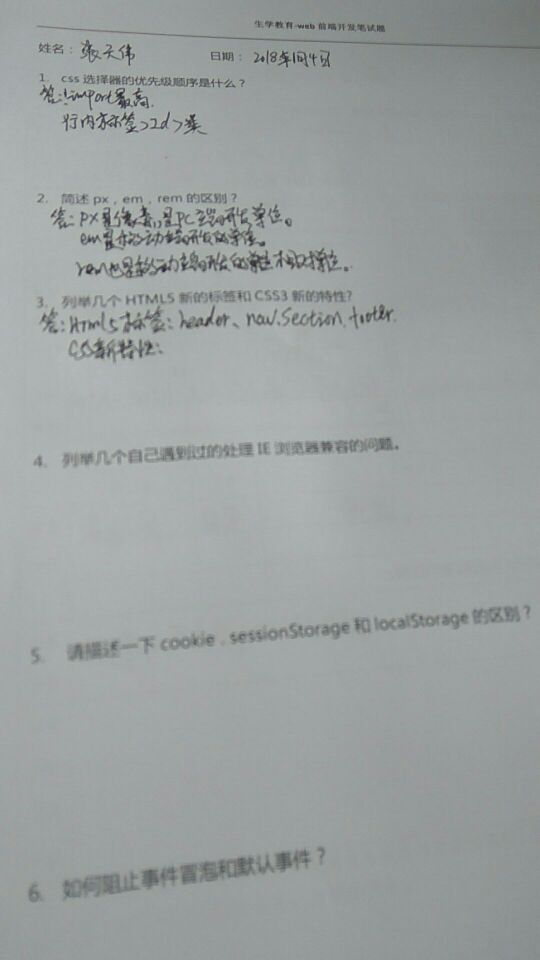 生学教育-web 前端开发笔试题
姓名：张天伟 日期：2018年1月4日
1. css 选择器的优先级顺序是什么？
答：!import最高.
行内标签>Id>类
2. 简述 px，em，rem 的区别？
答：PX是像素,是PC端开发单位。
em是移动端开发的单位。
rem也是移动端开发的单位相对单位。
3. 列举几个 HTML5 新的标签和 CSS3 新的特性?
答：Html5标签：header、nav.Section.footer.
CSS新特性：
4. 列举几个自己遇到过的处理 IE 浏览器兼容的问题。
5. 请描述一下 cookie，sessionStorage 和 localStorage 的区别？
6. 如何阻止事件冒泡和默认事件？